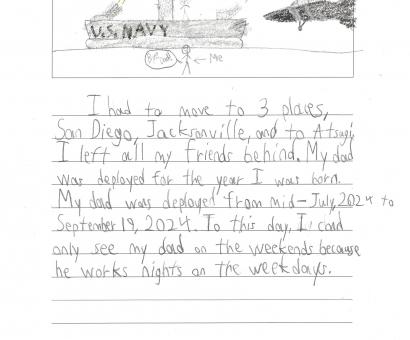 U.S. NAVY
Me
I had to move to 3 places,
San Diego, Jacksonville, and to Atsugi
I left all my friends behind. My dad
was deployed for the year I was born.
My dad was deployed from mid-July, 2024 to
September 19, 2024. To this day, I coud
only see my dad on the weekends because
he works nights on the weekdays.